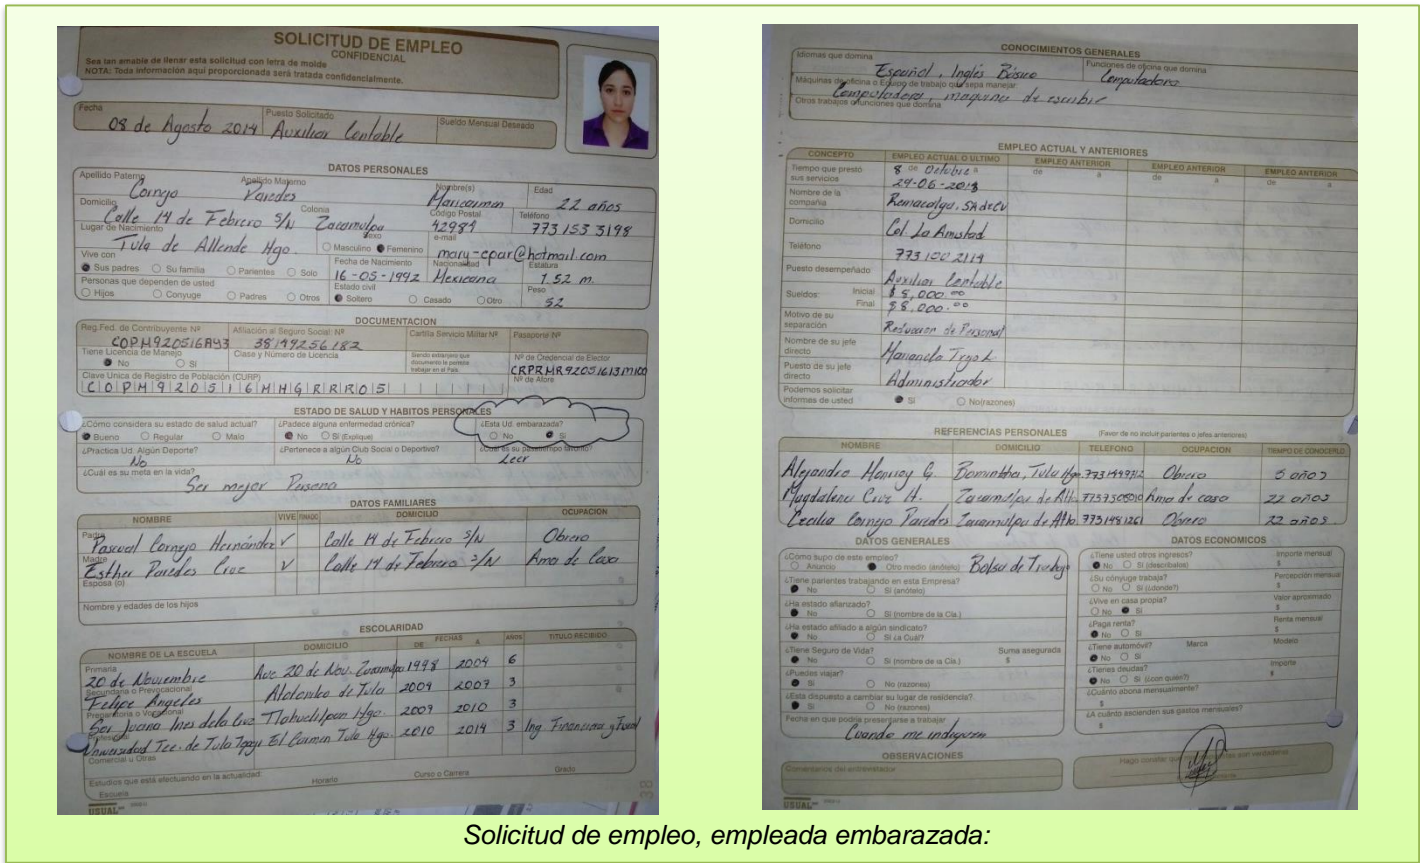 SOLICITUD DE EMPLEO
CONFIDENCIAL
Sea tan amable de llenar esta solicitud con letra de molde
NOTA: Toda información aquí proporcionada será tratada confidencialmente.
Fecha Puesto Solicitado Sueldo Mensual Deseado
08 de Agosto 2014 Auxiliar Contable
DATOS PERSONALES
Apellido Paterno Apellido Materno Nombre(s) Edad
Cornejo Paredes Maricarmen 22 años
Domicilio Colonia Código Postal Teléfono
Calle 14 de Febrero S/N Zacamulpa 42984 773 153 3198
Lugar de Nacimiento Sexo e-mail
Tula de Allende Hgo. Masculino Femenino mary-cpar@hotmail.com
Vive con Fecha de Nacimiento Nacionalidad Estatura
Sus padres Su familia Parientes Solo 16-05-1992 Mexicana 1.52 m.
Personas que dependen de usted Estado civil Peso
Hijos Conyuge Padres Otros Soltero Casado Otro 52
DOCUMENTACION
Reg.Fed. de Contribuyente Nº Afiliación al Seguro Social: Nº Cartilla Servicio Militar Nº Pasaporte Nº
COPM920516AY3 38149256182
Tiene Licencia de Manejo Clase y Número de Licencia Siendo extranjero que documento le permite trabajar en el País Nº de Credencial de Elector
No Si CRPRMR92051613M100
Clave Unica de Registro de Población (CURP) Nº de Afore
COPM920516MHGRRR05
ESTADO DE SALUD Y HABITOS PERSONALES
¿Cómo considera su estado de salud actual? ¿Padece alguna enfermedad crónica? ¿Esta Ud. embarazada?
Bueno Regular Malo No Si (Explique) No Si
¿Practica Ud. Algún Deporte? ¿Pertenece a algún Club Social o Deportivo? ¿Cuál es su pasatiempo favorito?
No No Leer
¿Cuál es su meta en la vida?
Ser mejor Persona
DATOS FAMILIARES
NOMBRE VIVE FINADO DOMICILIO OCUPACION
Padre
Pascual Cornejo Hernández V Calle 14 de Febrero S/N Obrero
Madre
Esther Paredes Cruz V Calle 14 de Febrero S/N Ama de Casa
Esposa (o)
Nombre y edades de los hijos
ESCOLARIDAD
NOMBRE DE LA ESCUELA DOMICILIO FECHAS DE A AÑOS TITULO RECIBIDO
Primaria
20 de Noviembre Ave 20 de Nov. Zacamulpa 1998 2004 6
Secundaria o Prevocacional
Felipe Angeles 2004 2007 3
Preparatoria o Vocacional
Sor Juana Ines dela Cruz Tlahuelilpan Hgo. 2007 2010 3
Profesional
Universidad Tec. de Tula Tepeji El Carmen Tula Hgo. 2010 2014 3 Ing. Financiera y Fiscal
Comercial u Otras
Estudios que está efectuando en la actualidad:
Escuela Horario Curso o Carrera Grado
USUAL
38
CONOCIMIENTOS GENERALES
Idiomas que domina Funciones de oficina que domina
Español, Inglés Básico Computadora
Máquinas de oficina o Equipo de trabajo que sepa manejar
Computadora, maquina de escribir
Otros trabajos o funciones que domina
EMPLEO ACTUAL Y ANTERIORES
CONCEPTO EMPLEO ACTUAL O ULTIMO EMPLEO ANTERIOR EMPLEO ANTERIOR EMPLEO ANTERIOR
Tiempo que prestó sus servicios 8 de Octubre a de a de a de a
Nombre de la compañía Remacalgu, SA de CV
Domicilio Col. La Amistad
Teléfono 773 100 2114
Puesto desempeñado Auxiliar Contable
Sueldos: Inicial
Final $8,000.00
Motivo de su separación Reduccion de Personal
Nombre de su jefe directo
Puesto de su jefe directo Administrador
Podemos solicitar informes de usted Si No(razones)
REFERENCIAS PERSONALES (Favor de no incluir parientes o jefes anteriores)
NOMBRE DOMICILIO TELEFONO OCUPACION TIEMPO DE CONOCERLO
Alejandro Monroy G. Tula Hgo. Obrero 5 años
Magdalena Cruz H. Zacamulpa de Alto Ama de casa 22 años
Cecilia Cornejo Paredes Zacamulpa de Alto. 7731481261 Obrero 22 años.
DATOS GENERALES
¿Cómo supo de este empleo?
Anuncio Otro medio (anótelo) Bolsa de Trabajo
¿Tiene parientes trabajando en esta Empresa?
No Si (anótelo)
¿Ha estado afianzado?
No Si (nombre de la Cía.)
¿Ha estado afiliado a algún sindicato?
No Si ¿A Cuál?
¿Tiene Seguro de Vida? Suma asegurada
No Si (nombre de la Cía.) $
¿Puedes viajar?
Si No (razones)
¿Esta dispuesto a cambiar su lugar de residencia?
Si No (razones)
Fecha en que podría presentarse a trabajar
Cuando me indiquen
DATOS ECONOMICOS
¿Tiene usted otros ingresos? Importe mensual
No Si (descríbalos) $
¿Su cónyuge trabaja? Percepción mensual
No Si (¿donde?) $
¿Vive en casa propia? Valor aproximado
No Si $
¿Paga renta? Renta mensual
No Si $
¿Tiene automóvil? Marca Modelo
No Si
¿Tienes deudas? Importe
No Si (¿con quién?) $
¿Cuánto abona mensualmente?
$
¿A cuánto ascienden sus gastos mensuales?
$
OBSERVACIONES
Comentarios del entrevistador
Hago constar que son verdaderas
USUAL
Solicitud de empleo, empleada embarazada: